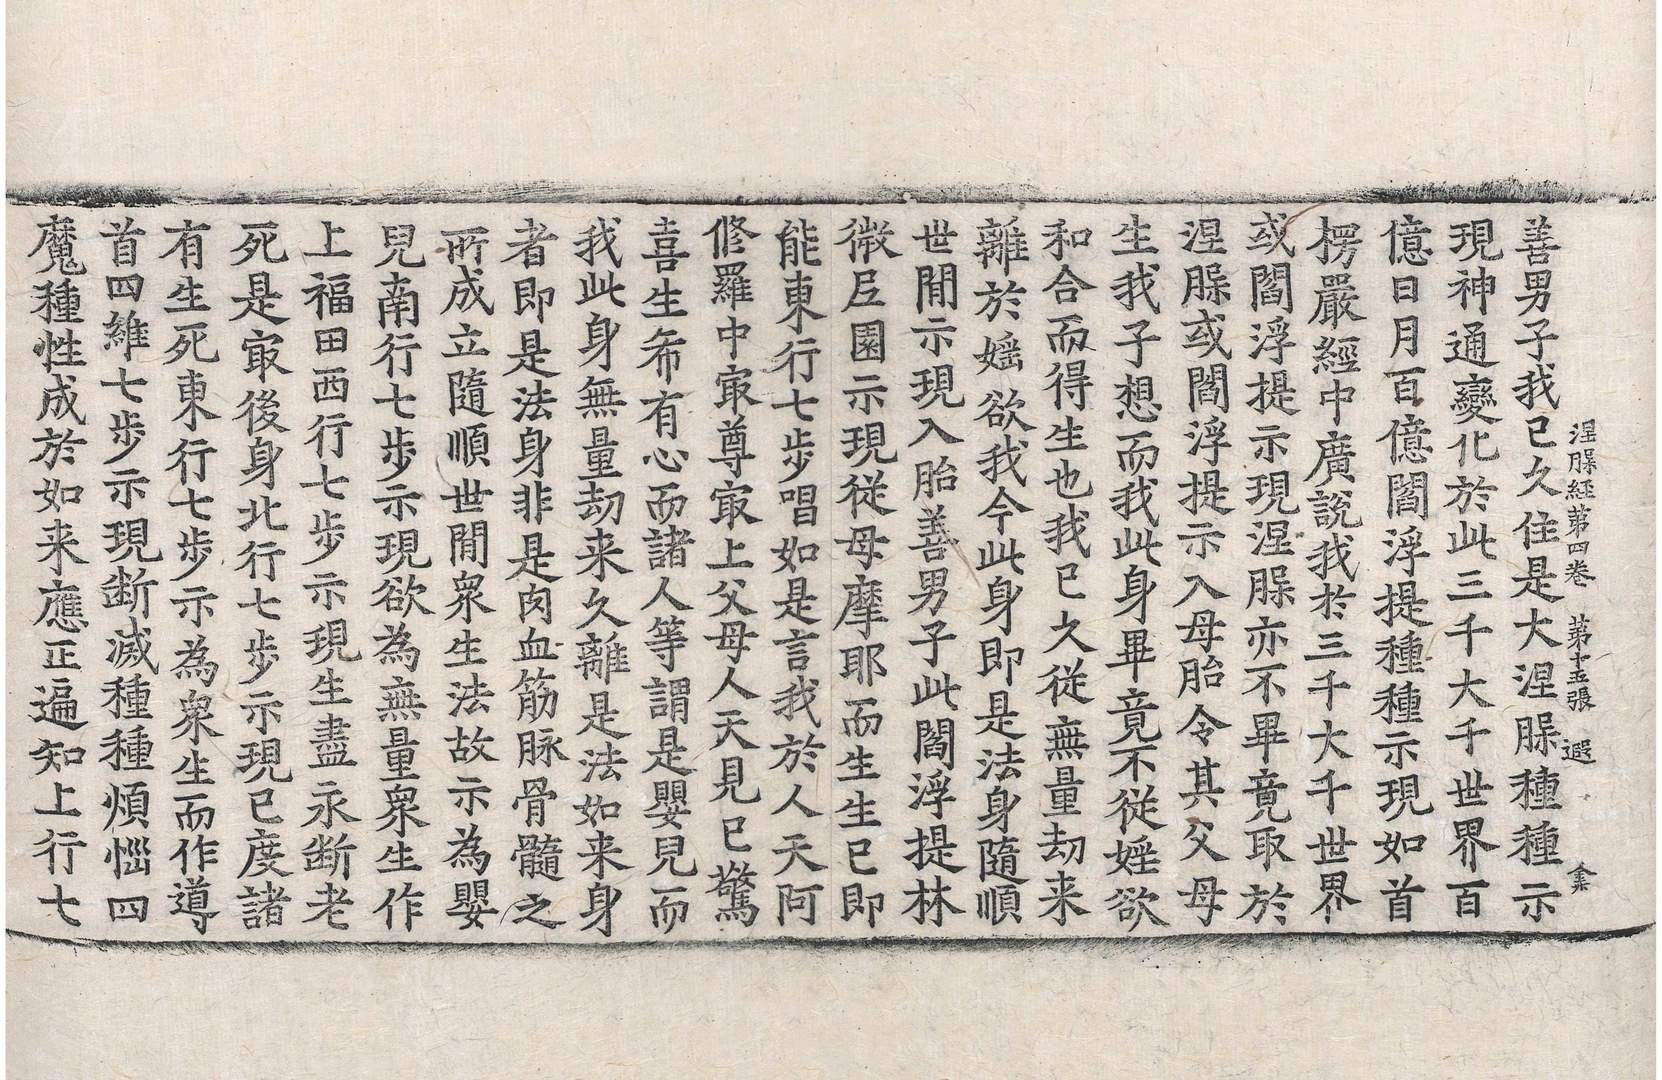 涅槃経第四巻　第十五張　遐　金
善男子我已久住是大涅槃種種示
現神通變化於此三千大千世界百
億日月百億閻浮提種種示現如首
楞嚴經中廣說我於三千大千世界
或閻浮提示現涅槃亦不畢竟取於
涅槃或閻浮提示入母胎令其父母
生我子想而我此身畢竟不從婬欲
和合而得生也我已久從無量劫来
離於婬欲我今此身即是法身隨順
世閒示現入胎善男子此閻浮提林
微尼園示現從母摩耶而生生已即
能東行七步唱如是言我於人天阿
修羅中冣尊冣上父母人天見已驚
喜生希有心而諸人等謂是嬰兒而
我此身無量劫来久離是法如来身
者即是法身非是肉血筋脉骨髓之
所成立隨順世閒衆生法故示為嬰
兒南行七步示現欲為無量衆生作
上福田西行七步示現生盡永断老
死是冣後身北行七步示現已度諸
有生死東行七步示為衆生而作導
首四維七步示現断滅種種煩惱四
魔種性成於如来應正遍知上行七